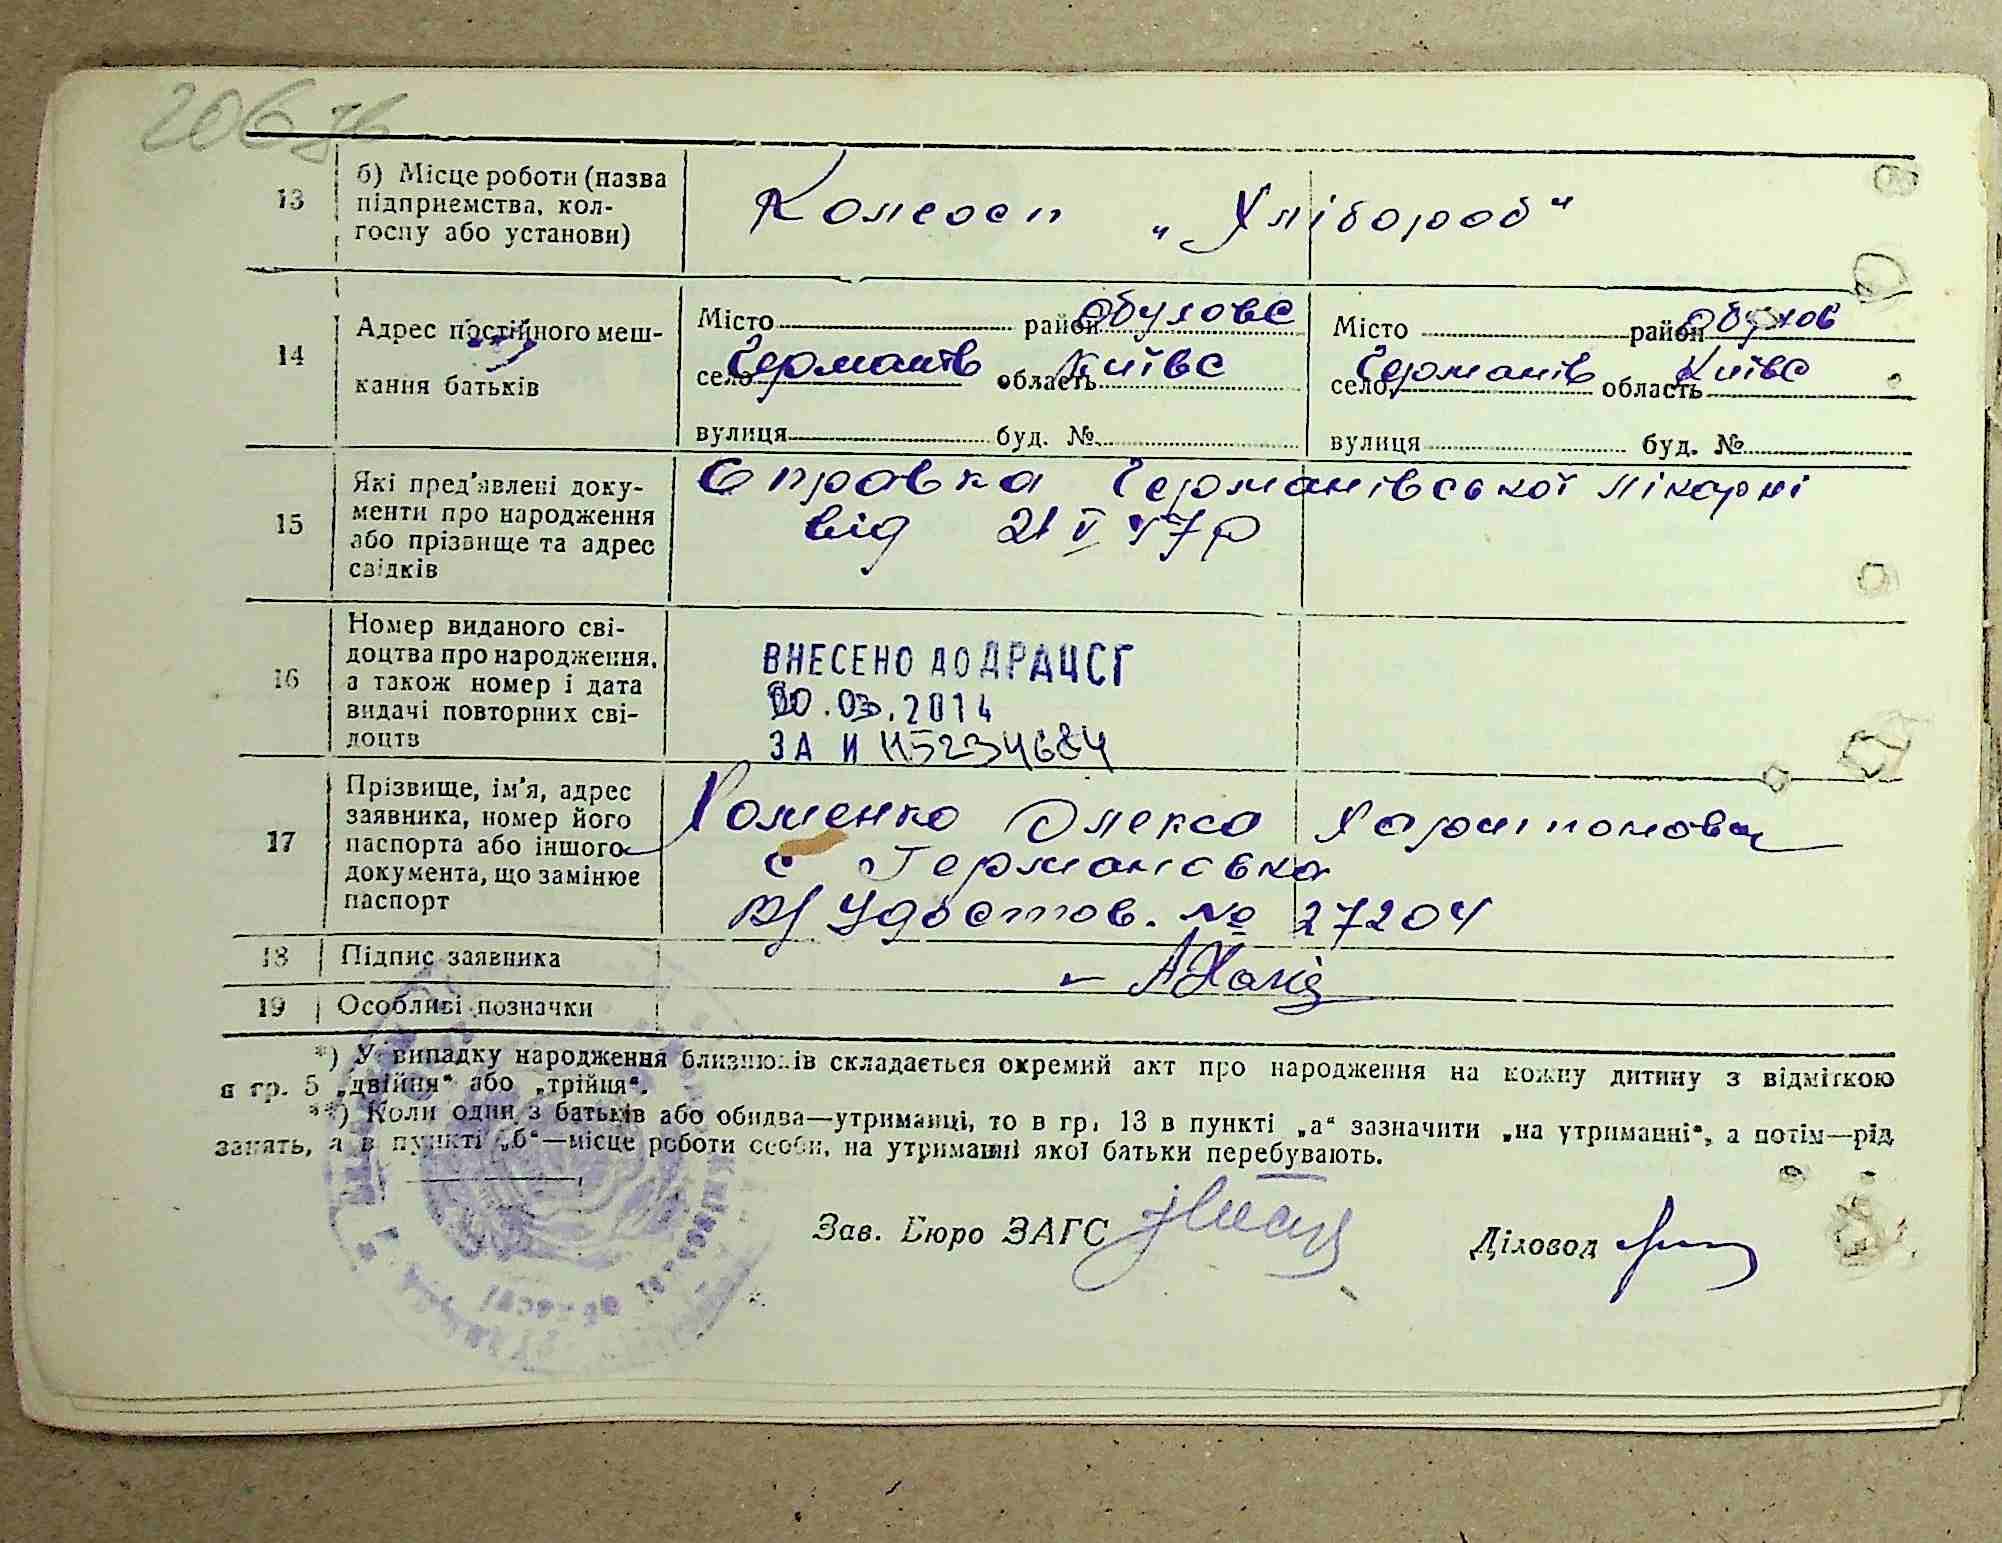 206 зв
13
б) Місце роботи (назва
підприємства, кол-
госпу або установи)
Колгосп „Хлібороб“
14
Адрес постійного меш-
кання батьків
Місто район Обуховс
село Германів область Київс
вулиця буд. №
Місто район Обухов
село Германів область Київс
вулиця буд. №
15
Які пред'явлені доку-
менти про народження
або прізвище та адрес
свідків
Справка Германівської лікарні
від 21 V 47 р
16
Номер виданого сві-
доцтва про народження,
а також номер і дата
видачі повторних сві-
доцтв
ВНЕСЕНО ДО ДРАЦСГ
.03.2014
ЗА И
17
Прізвище, ім'я, адрес
заявника, номер його
паспорта або іншого
документа, що замінює
паспорт
Хоменко Олекса Харитонович
с Германовка
Удостов. № 27204
18
Підпис заявника
19
Особливі позначки
*) У випадку народження близнюків складається окремий акт про народження на кожну дитину з відміткою
в гр. 5 „двійня“ або „трійця“.
**) Коли один з батьків або обидва—утриманці, то в гр. 13 в пункті „а“ зазначити „на утриманні“, а потім—рід
занять, а в пункті „б“—місце роботи особи, на утриманні якої батьки перебувають.
Зав. Бюро ЗАГС
Діловод